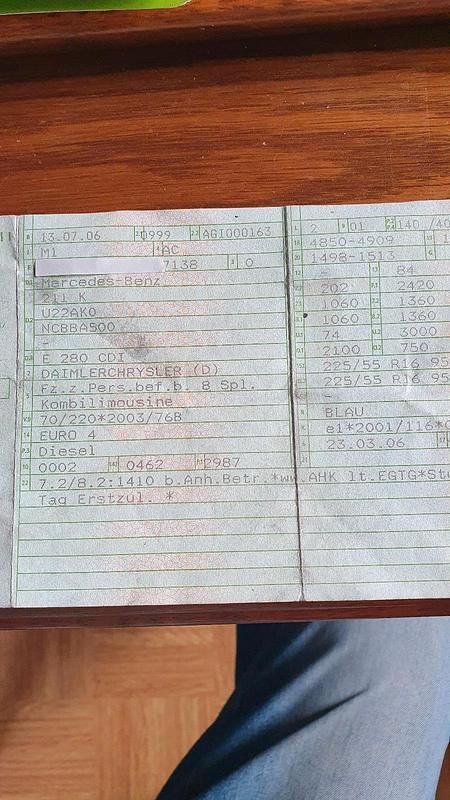 13.07.06 0999 AGI000163
M1 AC
7138 0
Mercedes-Benz
211 K
U22AK0
NCBBA500
-
E 280 CDI
DAIMLERCHRYSLER (D)
Fz.z.Pers.bef.b. 8 Spl.
Kombilimousine
70/220*2003/76B
EURO 4
Diesel
0002 0462 2987
7.2/8.2:1410 b.Anh.Betr.*ww.AHK lt.EGTG*
Tag Erstzul. *
2 01 140 /40
4850-4909
1498-1513
- 84
202 2420
1060 1360
1060 1360
74 3000
2100 750
225/55 R16 95
225/55 R16 95
-
BLAU
e1*2001/116*
23.03.06